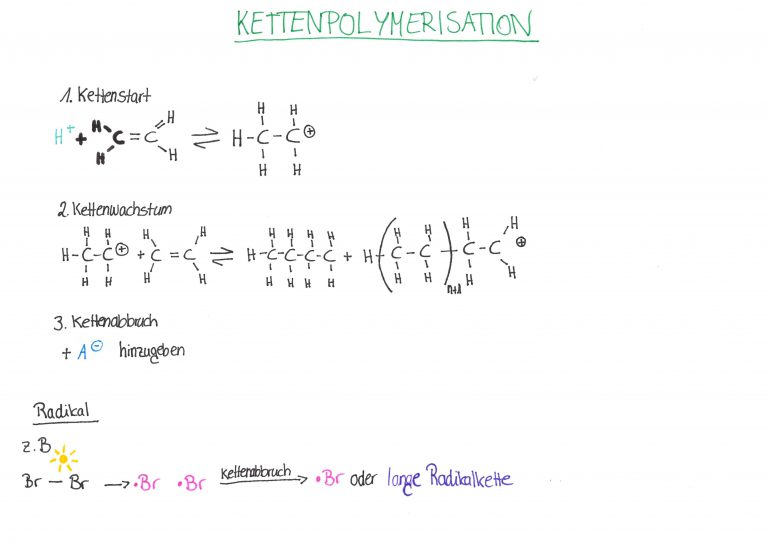 KETTENPOLYMERISATION
1. Kettenstart
H⁺ + H H C = C H H ⇌ H-C-C⊕ H H H H
2. Kettenwachstum
H-C-C⊕ H H H H + H H C = C H H ⇌ H-C-C-C-C H H H H H H H H + H(-C-C-)n+1 H H H H C-C⊕ H H H H
3. Kettenabbruch
+ A⊖ hinzugeben
Radikal
z.B
Br — Br → •Br •Br Kettenabbruch → •Br oder lange Radikalkette